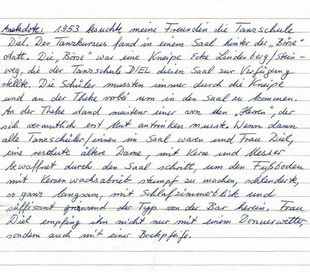 Anekdote: 1953 besuchte meine Freundin die Tanzschule
Diel. Der Tanzkursus fand in einem Saal hinter der "Börse"
statt. Die "Börse" war eine Kneipe Ecke Lindenberg/Stein-
weg, die der Tanzschule DIEL diesen Saal zur Verfügung
stellte. Die Schüler mussten immer durch die Kneipe
und an der Theke vorbei um in den Saal zu kommen.
An der Theke stand meistens einer von den "Herren", der
sich vermutlich erst Mut antrinken musste. Wenn dann
alle Tanzschüler/innen im Saal waren und Frau Diel,
eine resolute ältere Dame, mit Kerze und Messer
bewaffnet durch den Saal schritt, um den Fußboden
mit Kerzenwachsabrieb stumpf zu machen, schlenderte,
ganz langsam, mit Schlafzimmerblick und
süffisant grinsend der Typ von der Bar herein. Frau
Diel empfing ihn nicht nur mit einem Donnerwetter,
sondern auch mit einer Backpfeife.